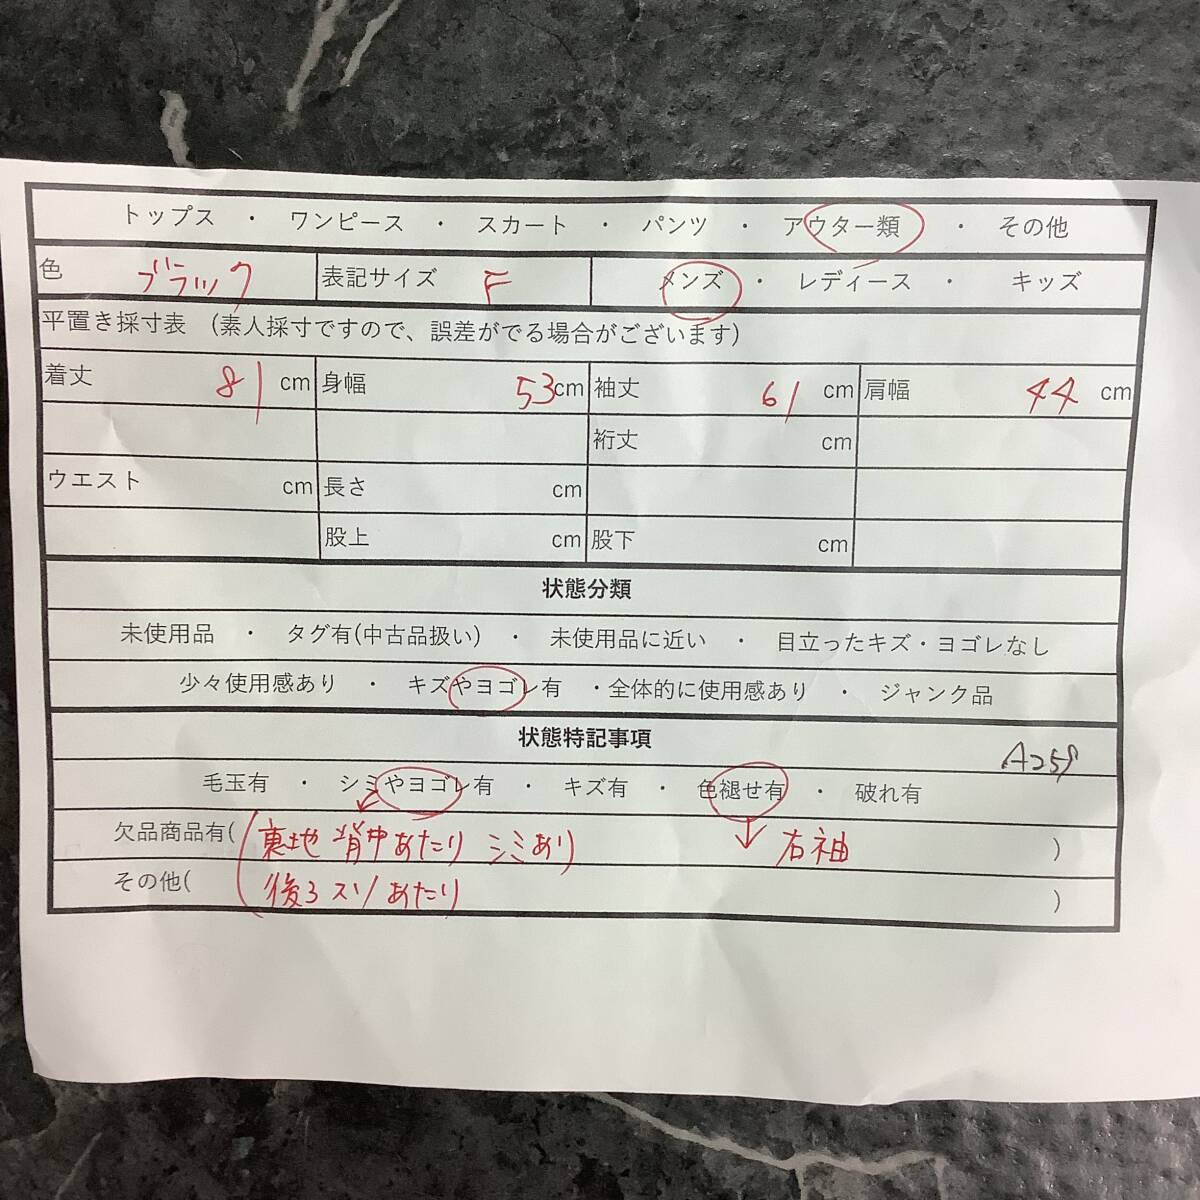 トップス ・ ワンピース ・ スカート ・ パンツ ・ アウター類 ・ その他
色 ブラック 表記サイズ F メンズ ・ レディース ・ キッズ
平置き採寸表 (素人採寸ですので、誤差がでる場合がございます)
着丈 81 cm 身幅 53 cm 袖丈 61 cm 肩幅 44 cm
裄丈 cm
ウエスト cm 長さ cm
股上 cm 股下 cm
状態分類
未使用品 ・ タグ有(中古品扱い) ・ 未使用品に近い ・ 目立ったキズ・ヨゴレなし
少々使用感あり ・ キズやヨゴレ有 ・全体的に使用感あり ・ ジャンク品
状態特記事項
毛玉有 ・ シミやヨゴレ有 ・ キズ有 ・ 色褪せ有 ・ 破れ有
欠品商品有( 裏地 背中あたり シミあり 右袖 )
その他( 後ろ スソ あたり )